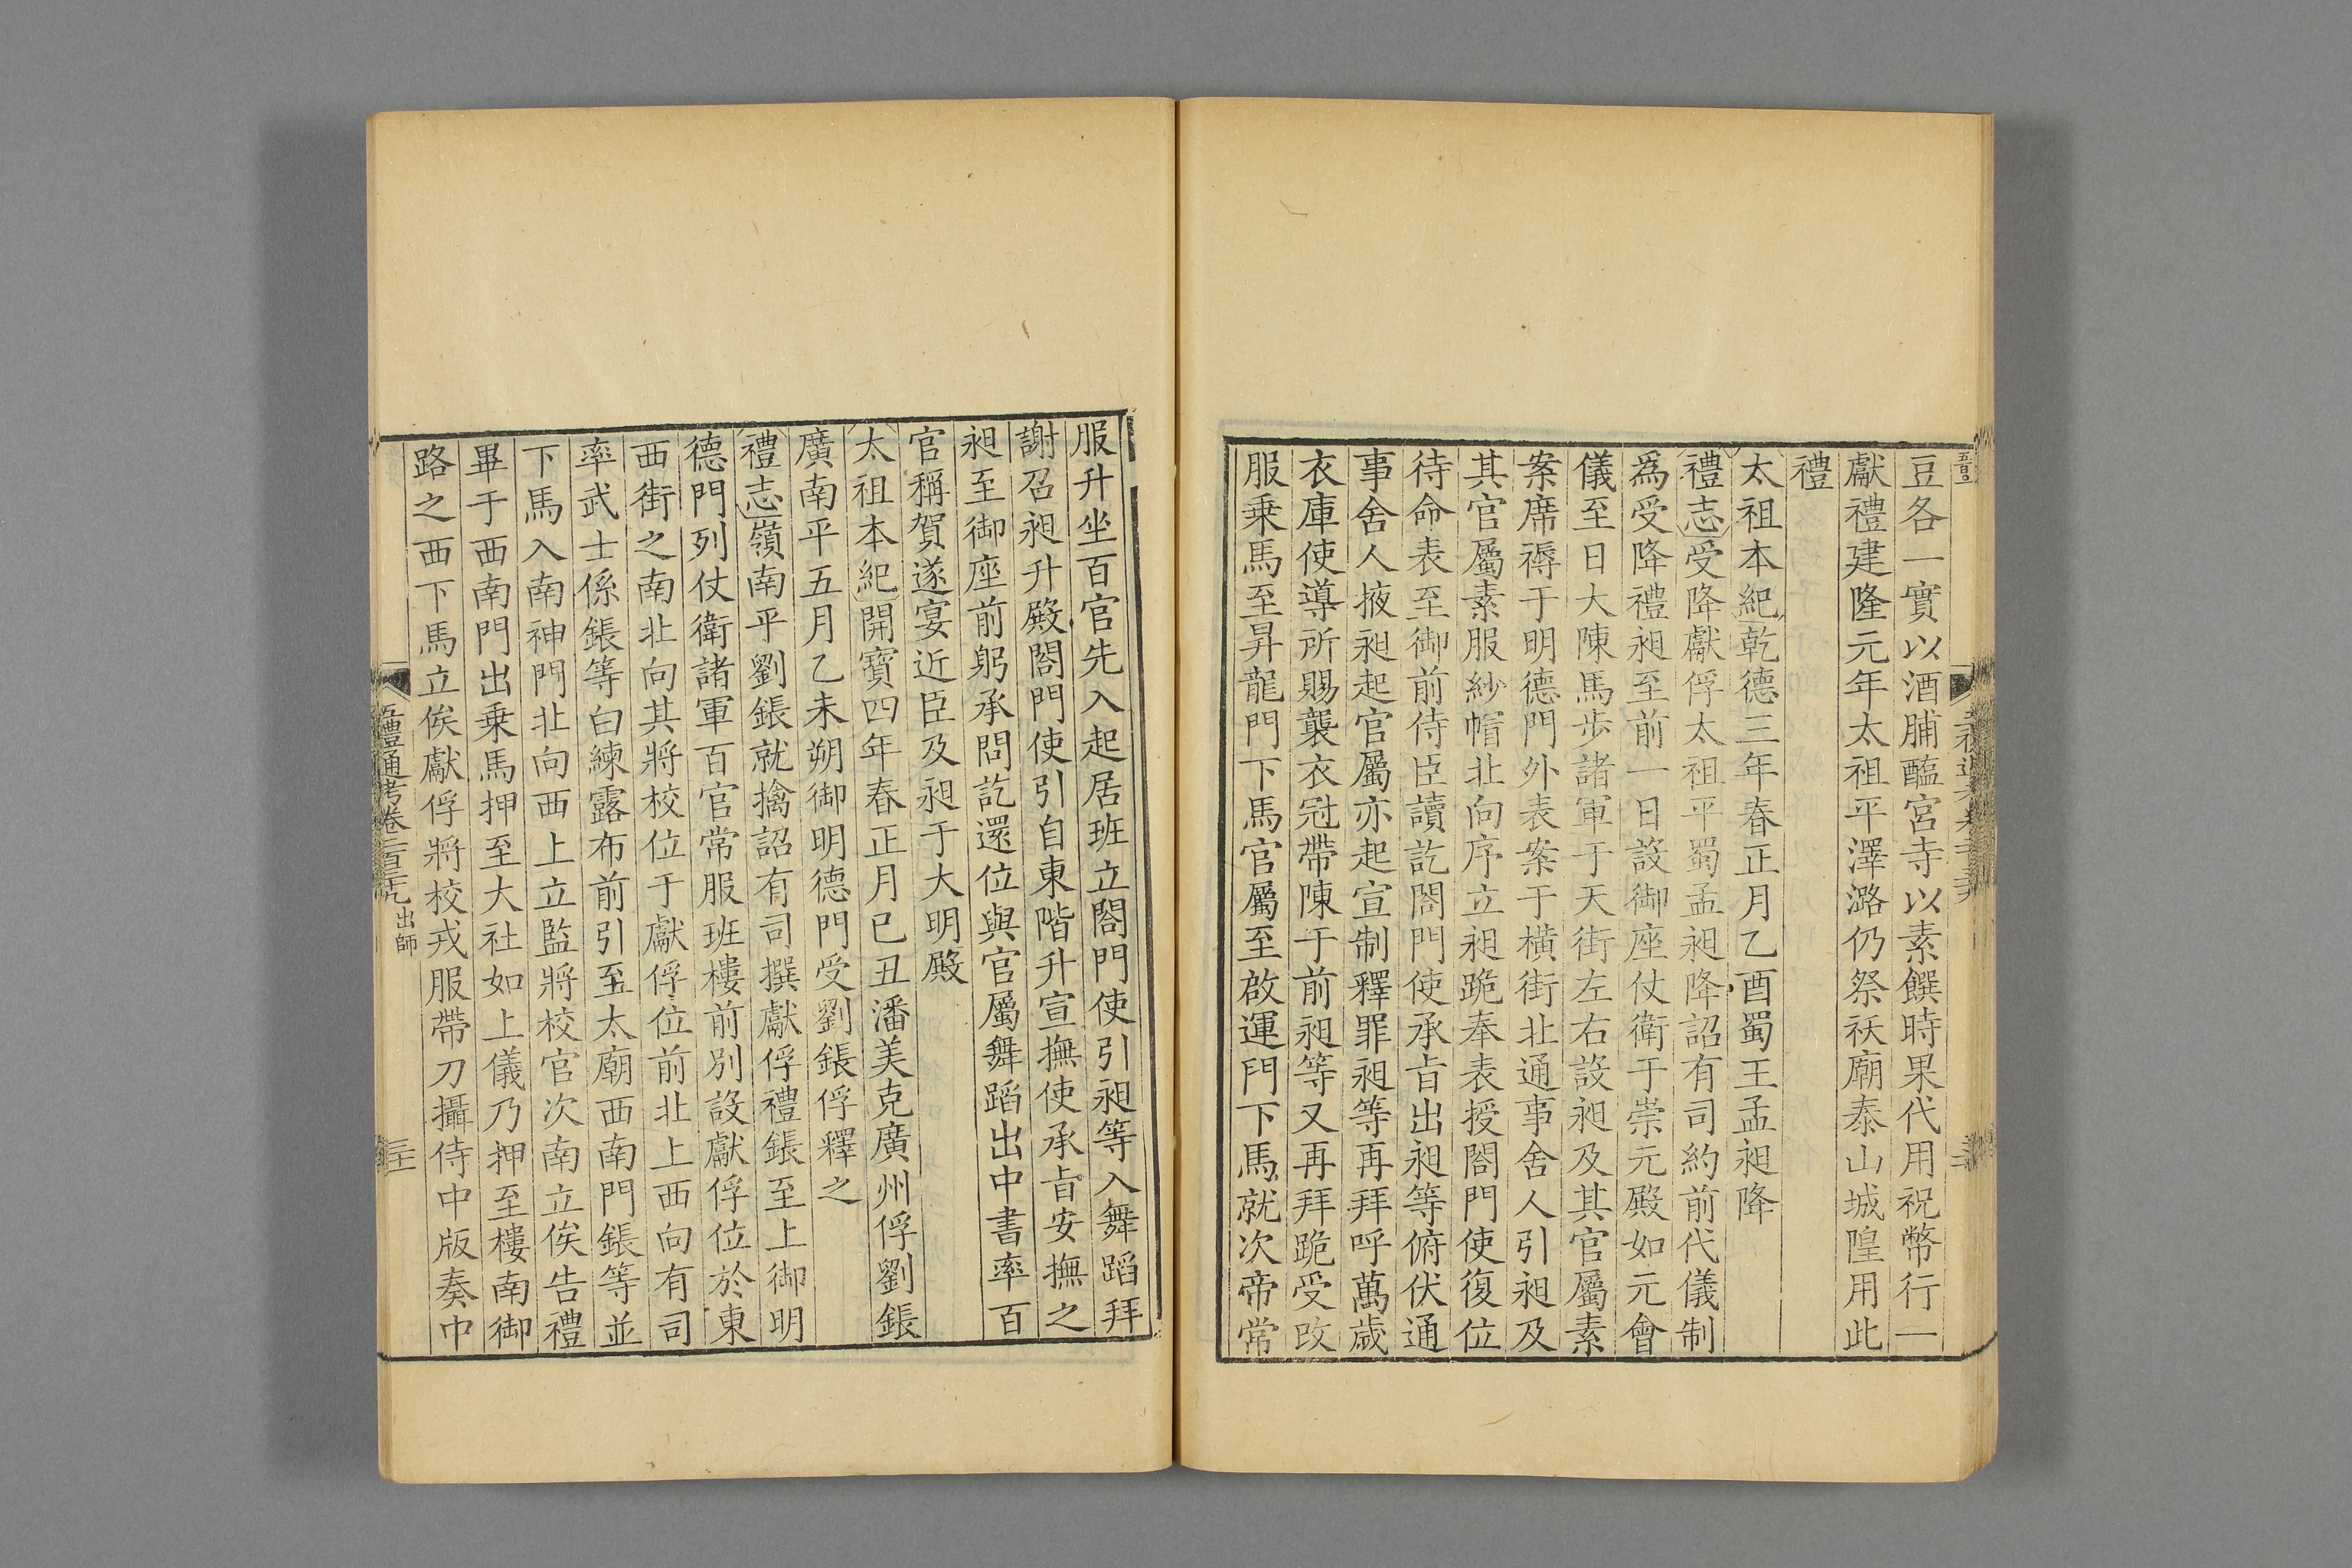 豆各一實以酒脯醢宮寺以素饌時果代用祝幣行一
獻禮建隆元年太祖平澤潞仍祭祅廟泰山城隍用此
禮
太祖本紀乾德三年春正月乙酉蜀王孟昶降
禮志受降獻俘太祖平蜀孟昶降詔有司約前代儀制
爲受降禮昶至前一日設御座仗衛于崇元殿如元會
儀至日大陳馬步諸軍于天街左右設昶及其官屬素
案席褥于明德門外表案于橫街北通事舍人引昶及
其官屬素服紗帽北向序立昶跪奉表授閤門使復位
待命表至御前侍臣讀訖閤門使承旨出昶等俯伏通
事舍人掖昶起官屬亦起宣制釋罪昶等再拜呼萬歲
衣庫使導所賜襲衣冠帶陳于前昶等又再拜跪受改
服乗馬至昇龍門下馬官屬至啟運門下馬就次帝常
服升坐百官先入起居班立閤門使引昶等入舞蹈拜
謝召昶升殿閤門使引自東階升宣撫使承旨安撫之
昶至御座前躬承問訖還位與官屬舞蹈出中書率百
官稱賀遂宴近臣及昶于大明殿
太祖本紀開寶四年春正月己丑潘美克廣州俘劉鋹
廣南平五月乙未朔御明德門受劉鋹俘釋之
禮志嶺南平劉鋹就擒詔有司撰獻俘禮鋹至上御明
德門列仗衛諸軍百官常服班樓前別設獻俘位於東
西街之南北向其將校位于獻俘位前北上西向有司
率武士係鋹等白練露布前引至太廟西南門鋹等並
下馬入南神門北向西上立監將校官次南立俟告禮
畢于西南門出乗馬押至大社如上儀乃押至樓南御
路之西下馬立俟獻俘將校戎服帶刀攝侍中版奏中
五禮通考卷二百三十九 出師
三十二